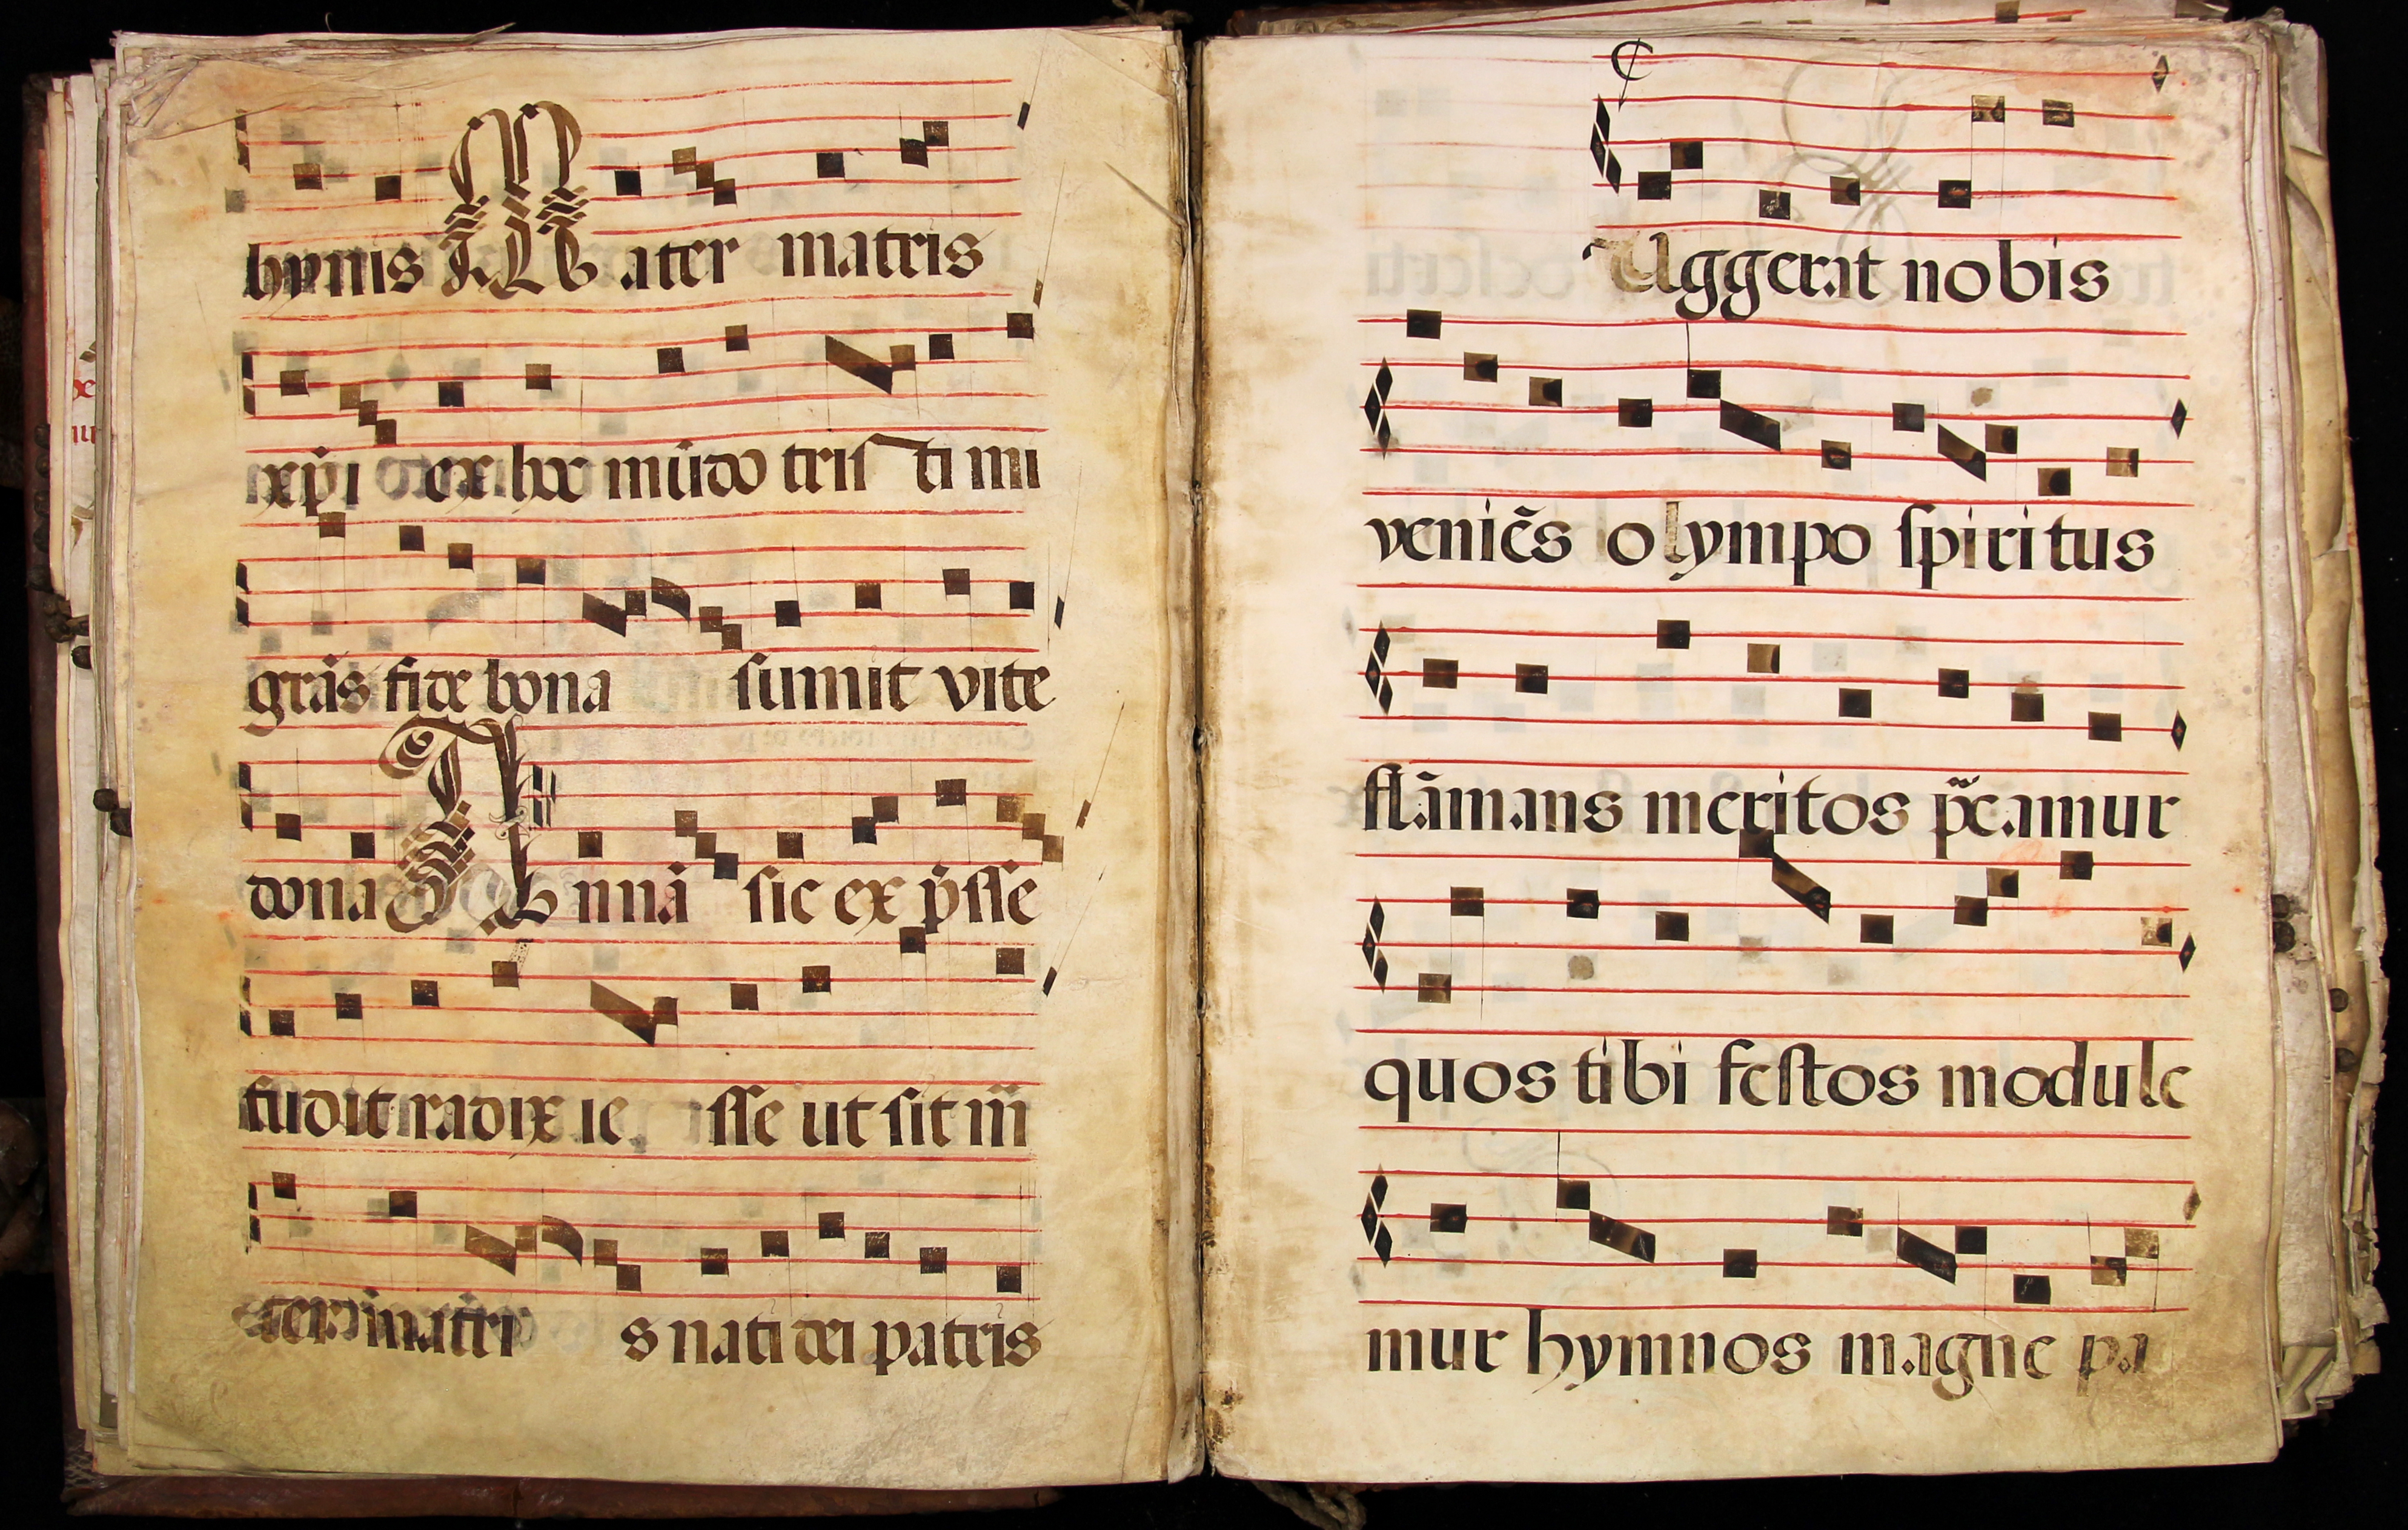 hymis Mater matris
xp̄i ex hoc mūdo tristi mi
grās fide bona sumit vite
dona Annā sic ex p̄sse
fudit radix ie sse ut sit m̄
matris nati dei patris
Uggerat nobis
veniēs olympo spiritus
flāmans meritos p̄camur
quos tibi festos module
mur hymnos magne pa